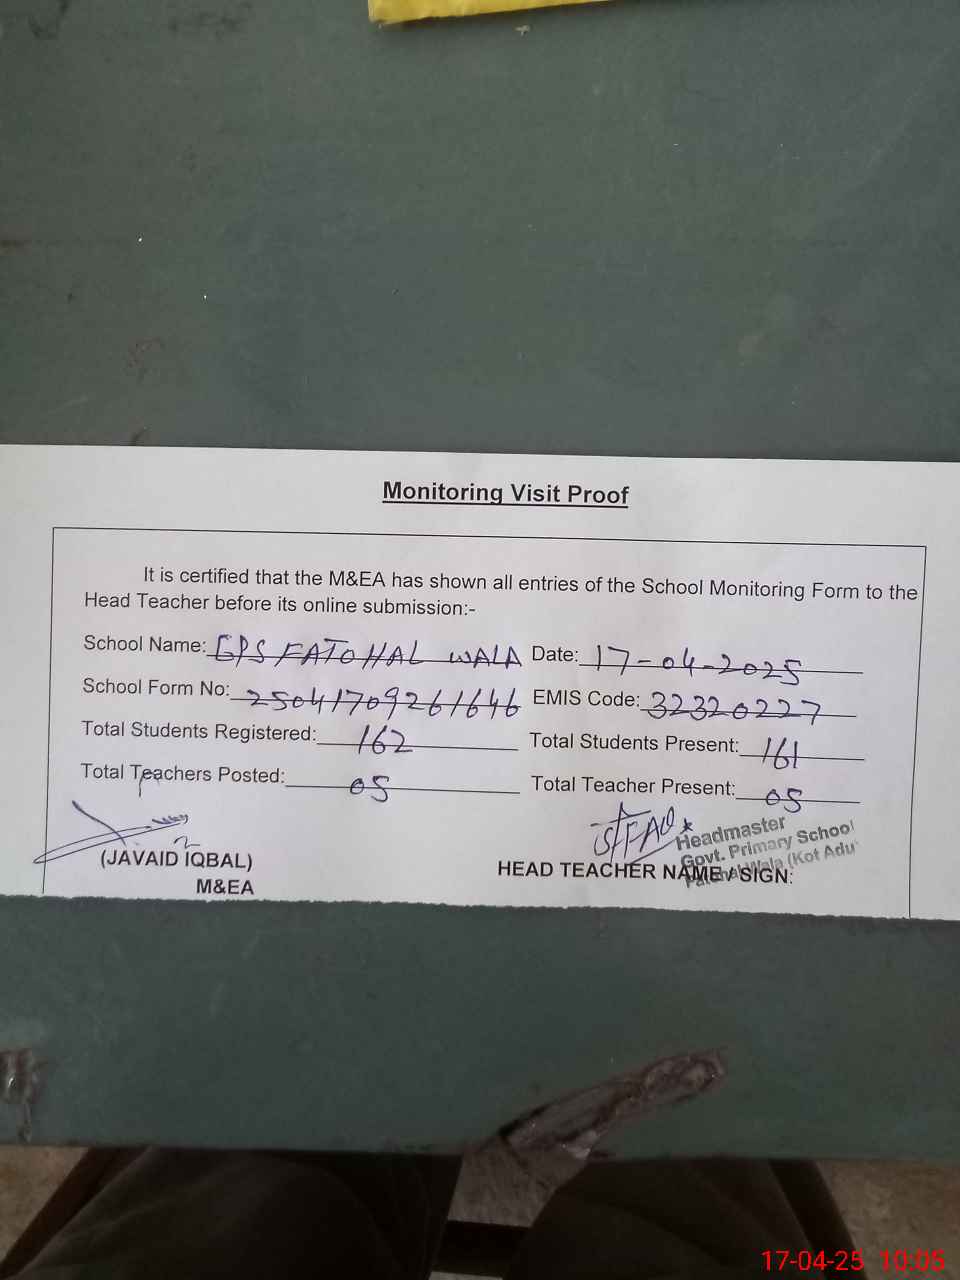 Monitoring Visit Proof
It is certified that the M&EA has shown all entries of the School Monitoring Form to the
Head Teacher before its online submission:-
School Name: GPS FATOHAL WALA Date: 17-04-2025
School Form No: 25041709261646 EMIS Code: 32320227
Total Students Registered: 162 Total Students Present: 161
Total Teachers Posted: 05 Total Teacher Present: 05
(JAVAID IQBAL)
M&EA
Headmaster
Govt. Primary School
Wala (Kot Adu
HEAD TEACHER NAME / SIGN:
17-04-25 10:05